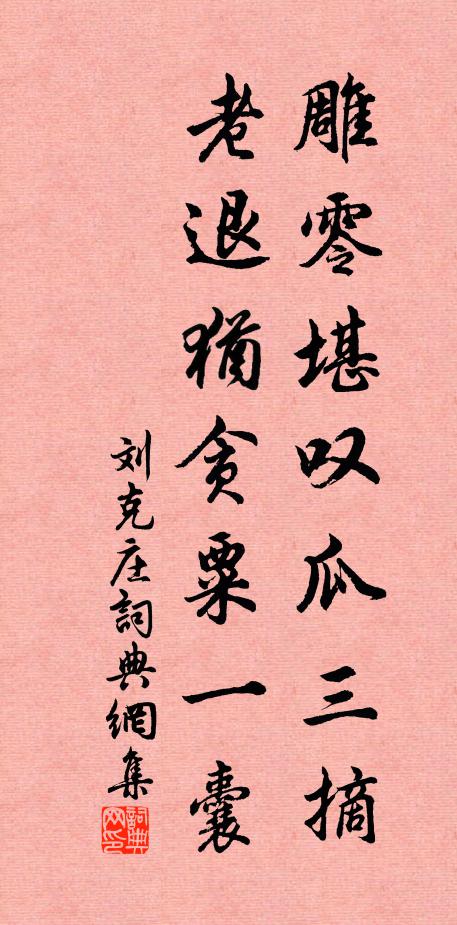 雕零堪叹瓜三摘
老退猶贪粟一囊
刘克庄詞典網集
詞典
网印